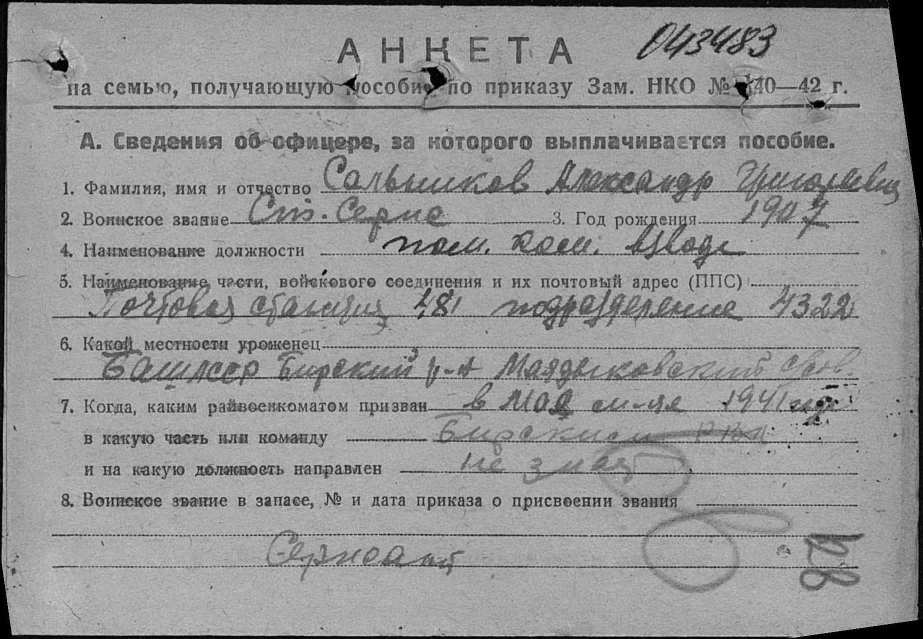 АНКЕТА 043483
на семью, получающую пособие по приказу Зам. НКО № 40—42 г.
А. Сведения об офицере, за которого выплачивается пособие.
1. Фамилия, имя и отчество Сальников Александр Григорьевич
2. Воинское звание 3. Год рождения 1907
4. Наименование должности пом. ком. взвода
5. Наименование части, войскового соединения и их почтовый адрес (ППС)
Почтовая станция 481 подразделение 4322
6. Какой местности уроженец
Башсср Бирский р-н
7. Когда, каким райвоенкоматом призван в мае м-це 1941
в какую часть или команду Бирским РВК
и на какую должность направлен не знаю
8. Воинское звание в запасе, № и дата приказа о присвоении звания
Сержант